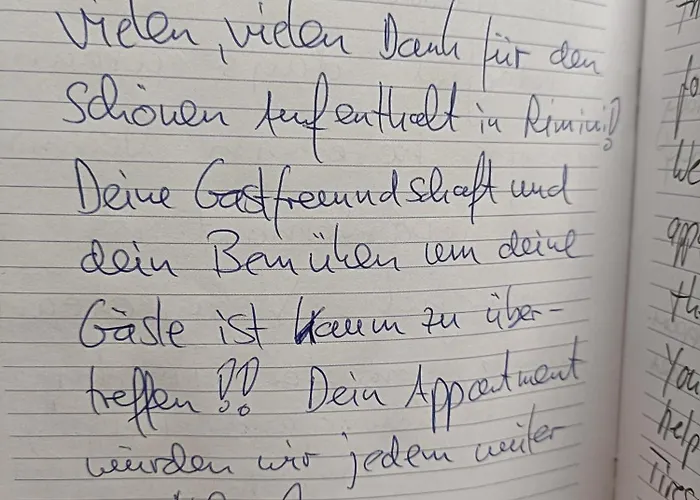 Vielen, vielen Dank für den
schönen Aufenthalt in Rimini!
Deine Gastfreundschaft und
dein Bemühen um deine
Gäste ist kaum zu über-
treffen!! Dein Appartment
würden wir jedem weiter